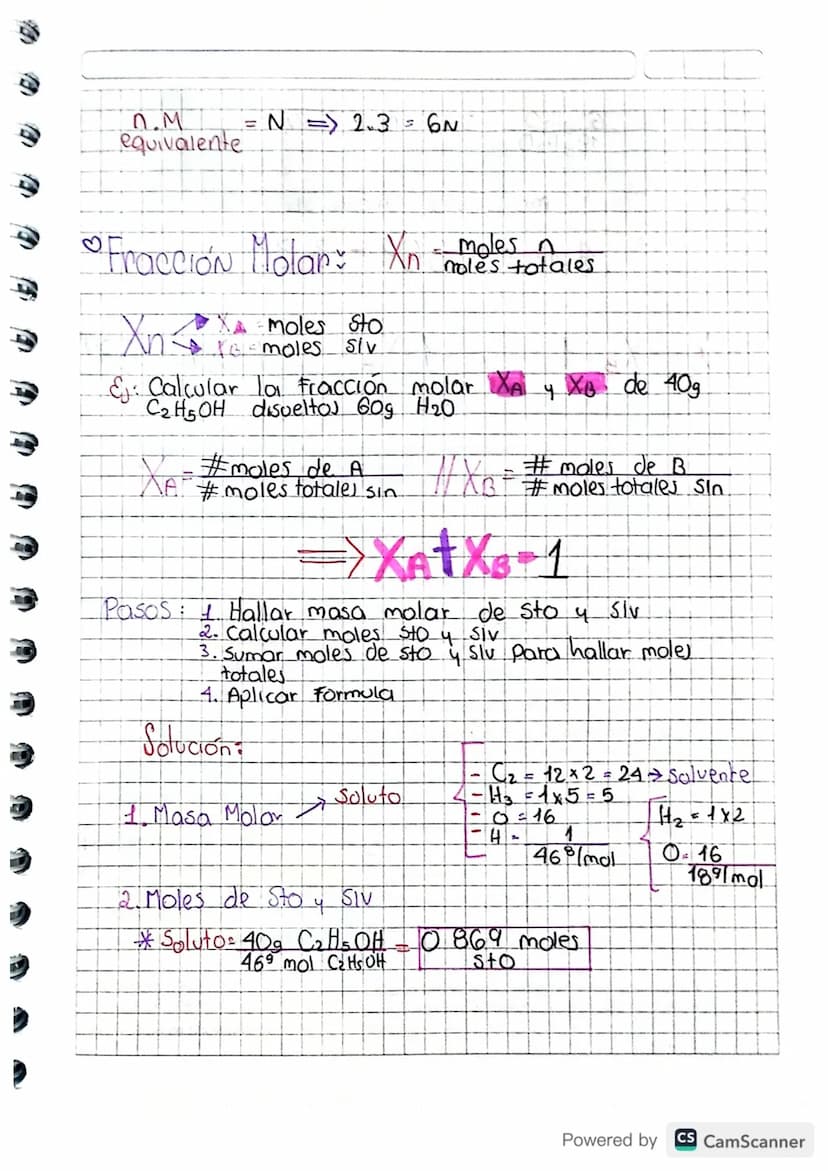 n.M = N ⇒ 2.3 = 6N
equivalente
♡Fracción Molar: Xn = moles n
moles totales
Xn XA = moles sto
XB = moles slv
Ej: Calcular la fracción molar XA y XB de 40g
C2H5OH disueltos 60g H2O
XA = # moles de A // XB = # moles de B
# moles totales sln # moles totales sln
⇒ XA + XB = 1
Pasos: 1. Hallar masa molar de sto y slv
2. Calcular moles sto y slv
3. Sumar moles de sto y slv para hallar moles
totales
4. Aplicar formula
Solución:
1. Masa Molar → Soluto
- C2 = 12 x 2 = 24 → Solvente
- H3 = 1 x 5 = 5
- O = 16
- H = 1
46g/mol
H2 = 1 x 2
O = 16
18g/mol
2. Moles de Sto y Slv
* Soluto = 40g C2H5OH = 0 869 moles
46g mol C2H5OH sto
Powered by CS CamScanner